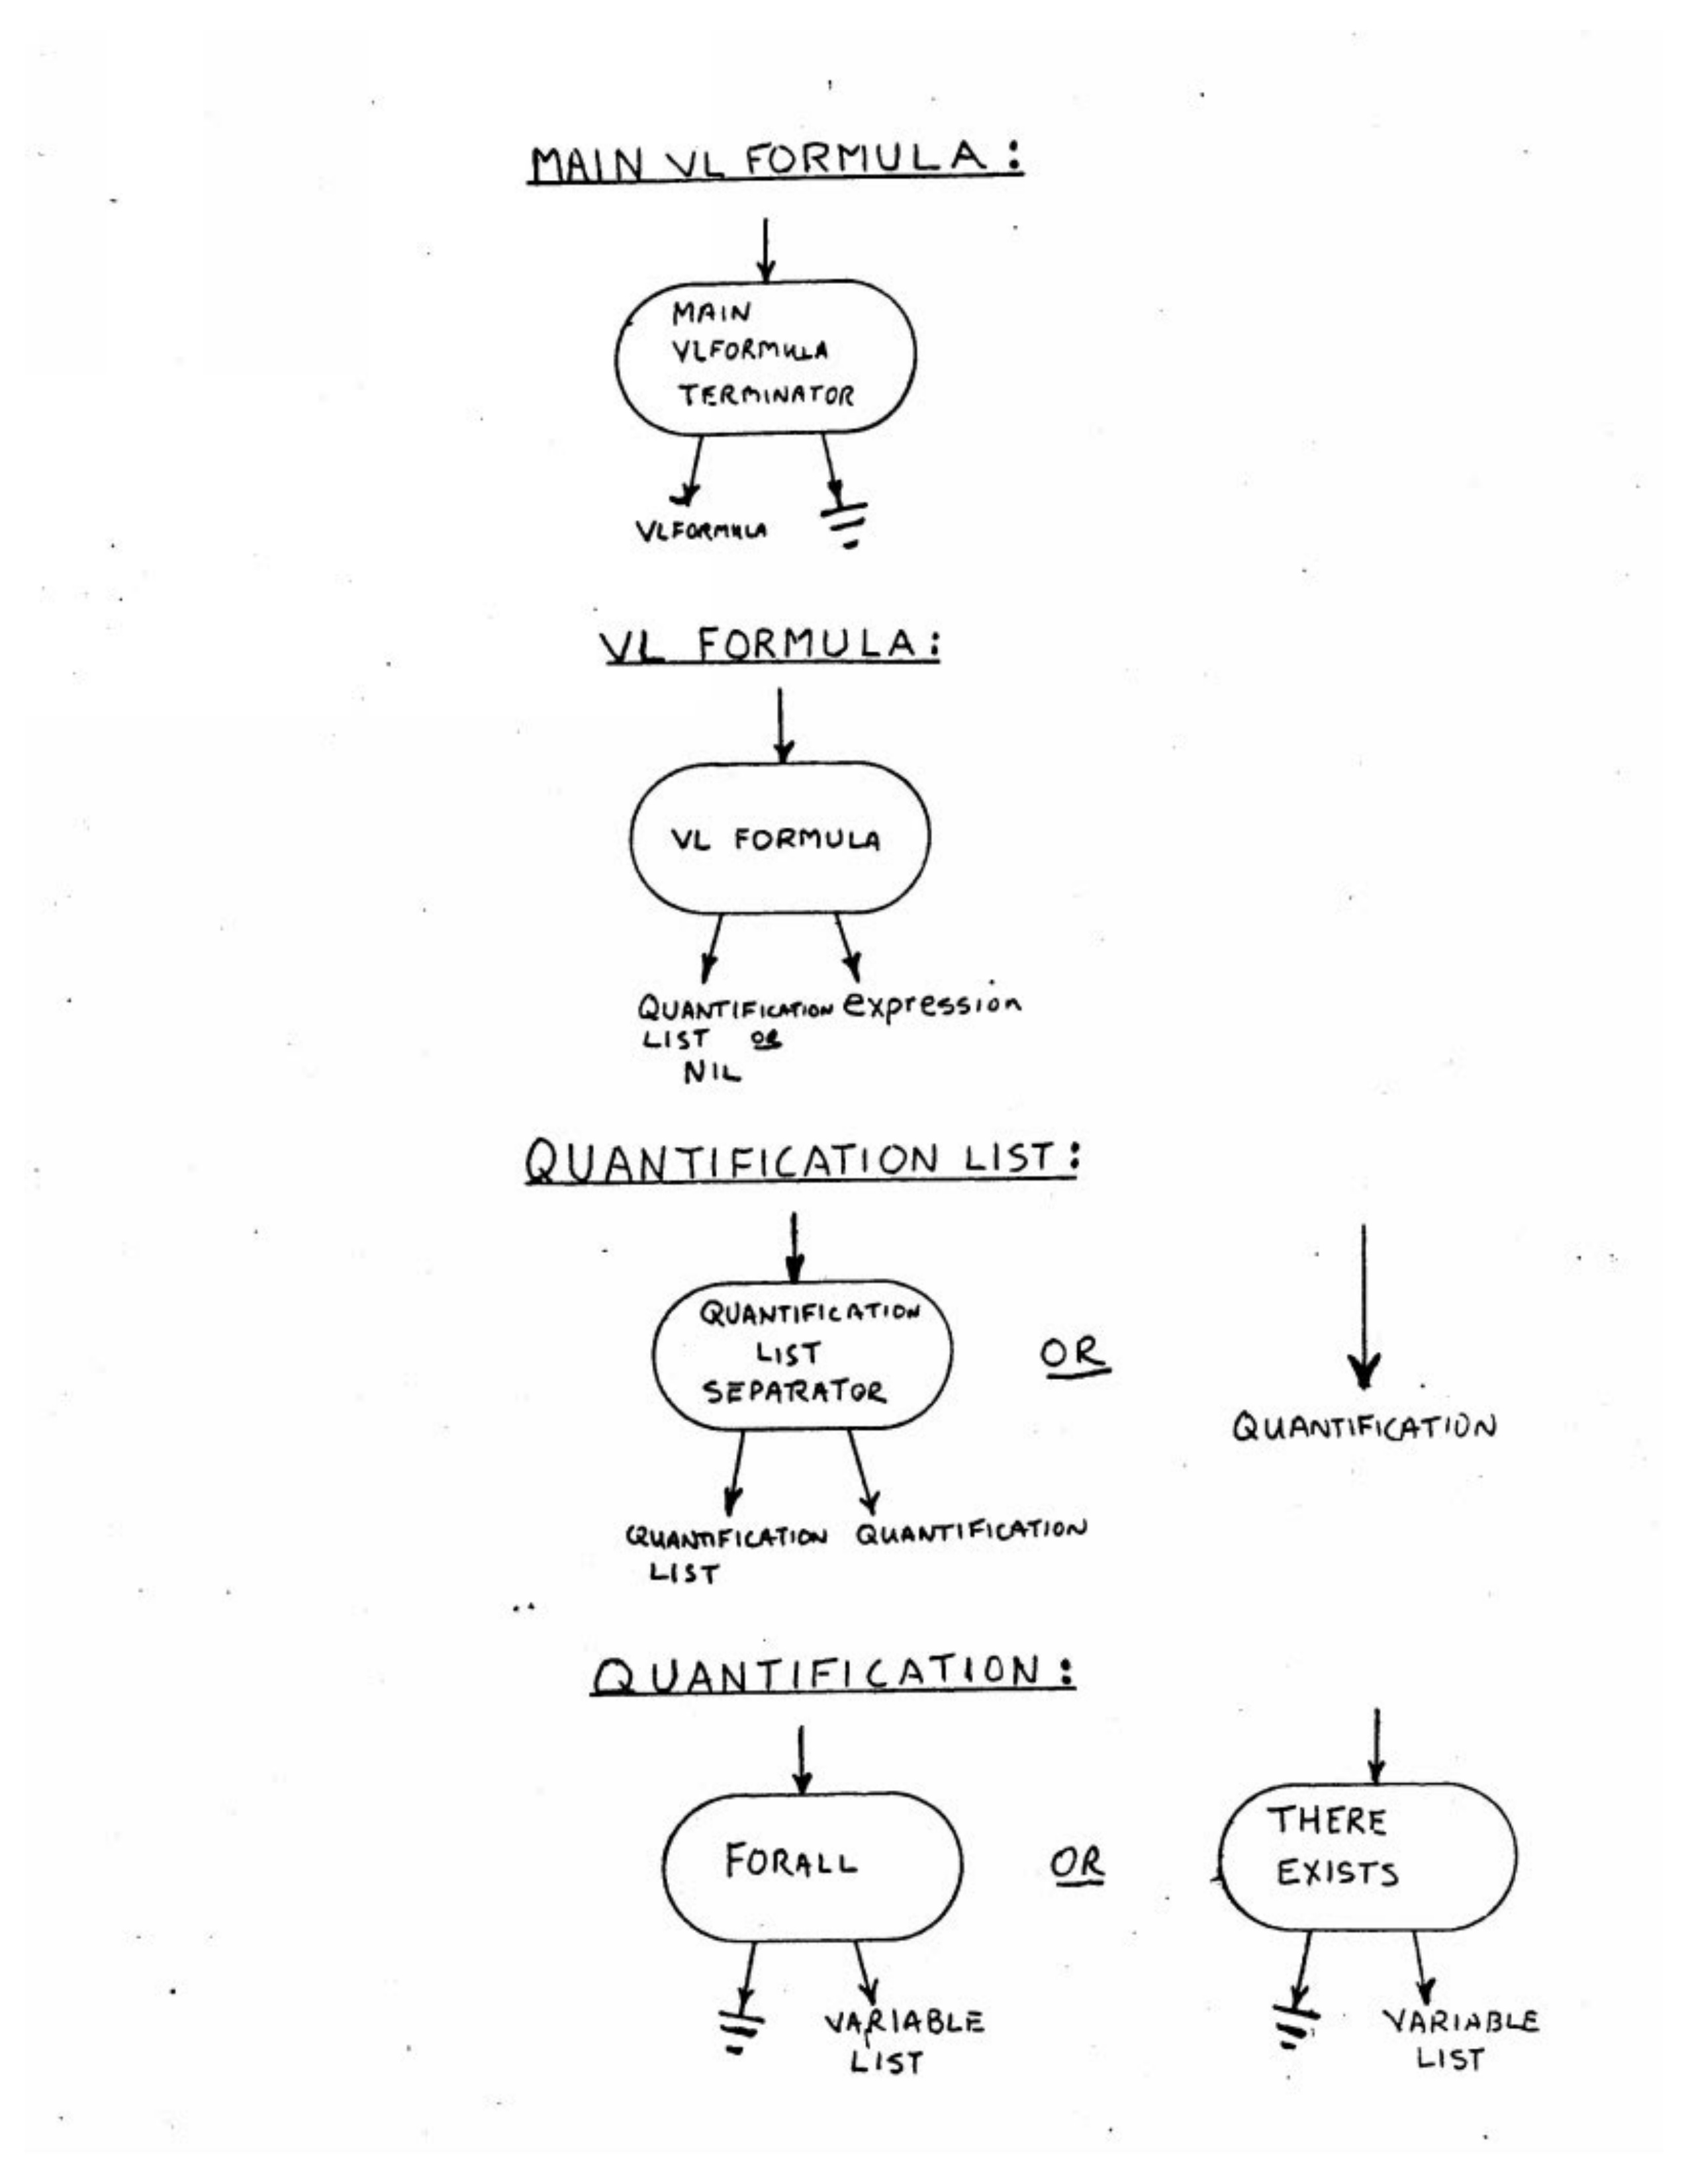 MAIN VL FORMULA:
MAIN
VLFORMULA
TERMINATOR
VLFORMULA
VL FORMULA:
VL FORMULA
QUANTIFICATION expression
LIST OR
NIL
QUANTIFICATION LIST:
QUANTIFICATION
LIST
SEPARATOR
OR
QUANTIFICATION
QUANTIFICATION QUANTIFICATION
LIST
QUANTIFICATION:
FORALL
OR
THERE
EXISTS
VARIABLE
LIST
VARIABLE
LIST